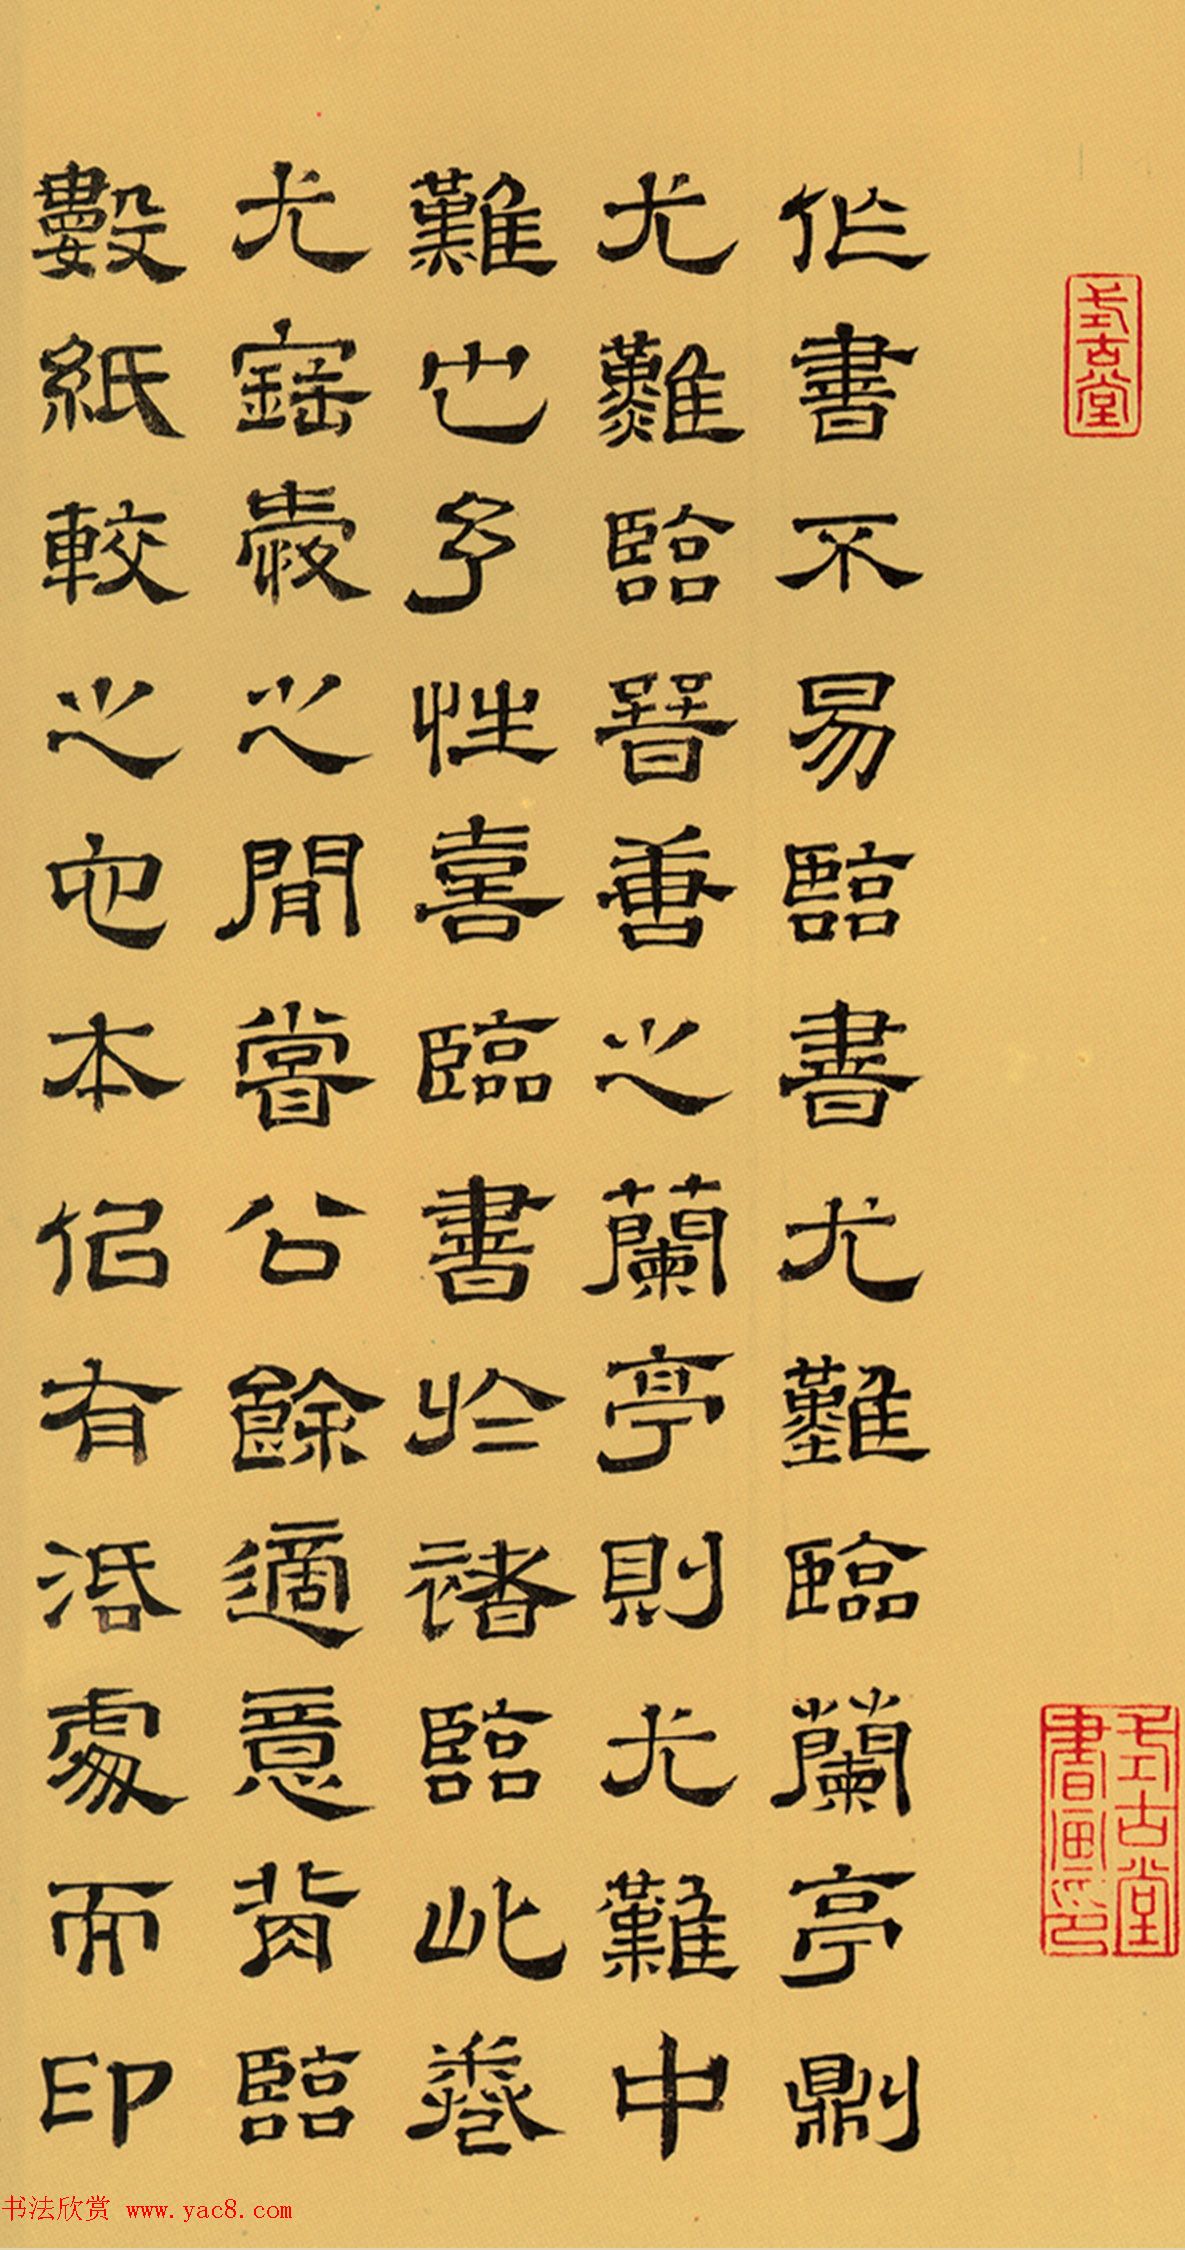 式古堂
式古堂書畫印
作書不易臨書尤難臨蘭亭則
尤難臨晉善之蘭亭則尤難中
難也予性喜臨書於褚臨此卷
尤寶愛之閒嘗公餘適意背臨
數紙較之它本佀有活處而印
书法欣赏 www.yac8.com